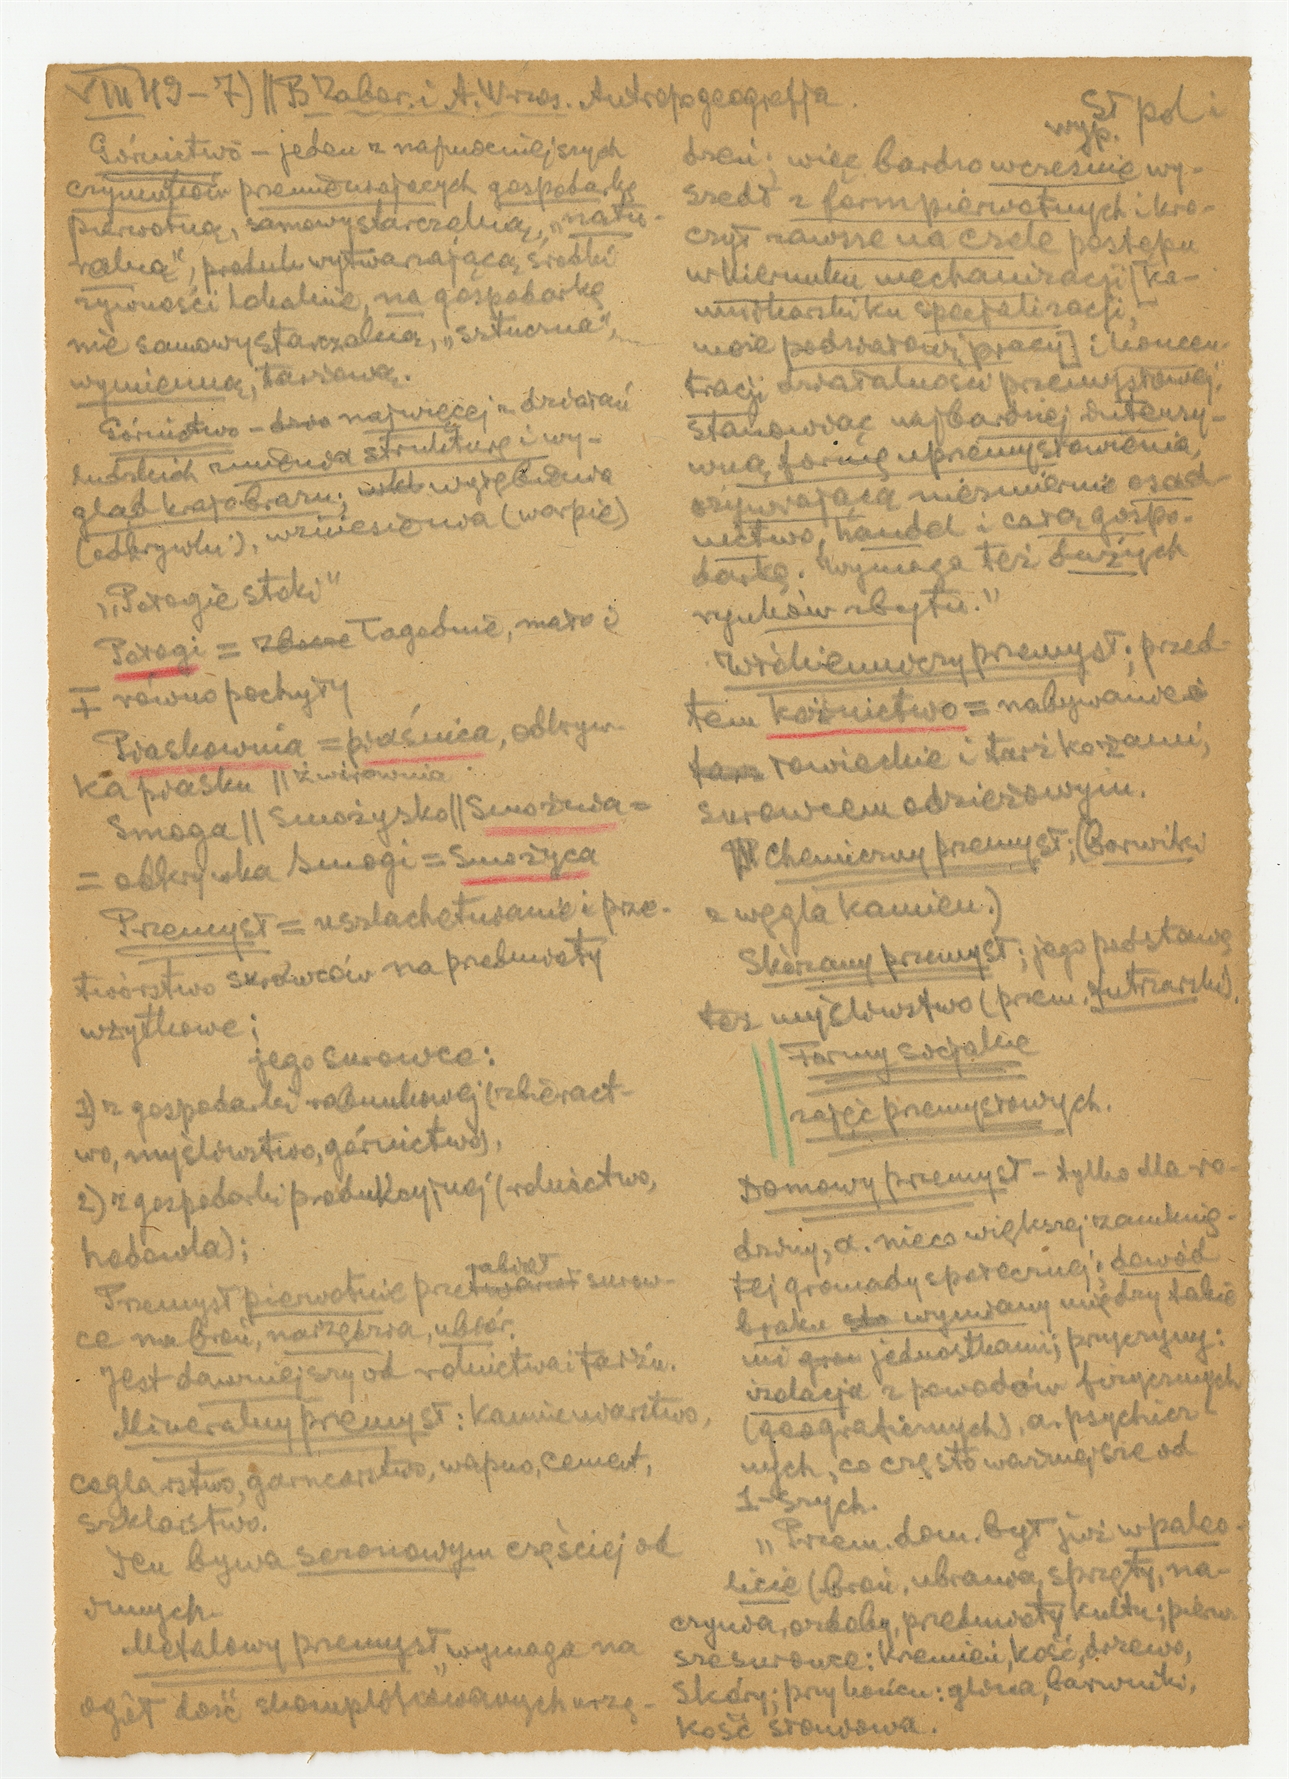 VIII 49 – 7) || B Zabor. i A. Wrzos. Antropogeografja.
St pol i
wyp.
Górnictwo – jeden z najmocniejszych
czynników przemieniających gospodarkę
pierwotną, samowystarczalną, „natu-
ralną", wytwarzającą środki
żywności lokalnie, na gospodarkę
nie samowystarczalną, „sztuczną",
wymienną, targową.
Górnictwo – ono najwięcej z działań
ludzkich zmienia strukturę i wy-
gląd krajobrazu; wgłębienia
(odkrywki), wzniesienia (warpie)
„Połogie stoki"
Połogi = łagodnie, mało i
∓ równo pochyły
Piaskownia = piaśnica, odkryw-
ka piasku || żwirownia.
Smoga || Smożysko || Smożnia =
= odkrywka smogi = Smożyca
Przemysł = uszlachetnianie i prze-
twórstwo surowców na przedmioty
użytkowe;
jego surowce:
1) z gospodarki rabunkowej (zbieract-
wo, myśliwstwo, górnictwo),
2) z gospodarki produkcyjnej (rolnictwo,
hodowla);
Przemysł pierwotnie przerabiał surow-
ce na broń, narzędzia, ubiór.
Jest dawniejszy od rolnictwa i targu.
Mineralny przemysł: kamieniarstwo,
ceglarstwo, garncarstwo, wapno, cement,
szklarstwo.
Ten bywa sezonowym częściej od
innych.
Metalowy przemysł „wymaga na
ogół dość skomplikowanych urzą-
dzeń; więc bardzo wcześnie wy-
szedł z form pierwotnych i kro-
czył zawsze na czele postępu
w kierunku mechanizacji [ka-
mitkarskiku specjalizacji,
może podziałowi pracy] i koncen-
tracji działalności przemysłowej,
stanowiąc najbardziej intensy-
wną formę uprzemysłowienia,
ożywiającą niezmiernie osad-
nictwo, handel i całą gospo-
darkę. Wymaga też dużych
rynków zbytu."
Włókienniczy przemysł; przed-
tem kożnictwo = nabywanie
łowieckie i targ kożami,
surowcem odzieżowym.
Chemiczny przemysł; (barwiki
z węgla kamien.)
Skórzany przemysł; jego podstawą
też myśliwstwo (przem. futrzarski).
Formy socjalne
zajęć przemysłowych.
Domowy przemysł – tylko dla ro-
dziny, a. nieco większej zamknię-
tej gromady społecznej; dowód
braku wymiany między takie
mi jednostkami; przyczyny:
izolacja z powodów fizycznych
(geograficznych), a. psychicz-
nych, co często ważniejsze od
1-szych.
„Przem. dom. był już w paleo-
licie (broń, ubrania, sprzęty, na-
czynia, ozdoby, przedmioty kultu; pierw
sze surowce: krzemień, kość, drzewo,
skóry; przy końcu: glina, barwniki,
kość słoniowa.